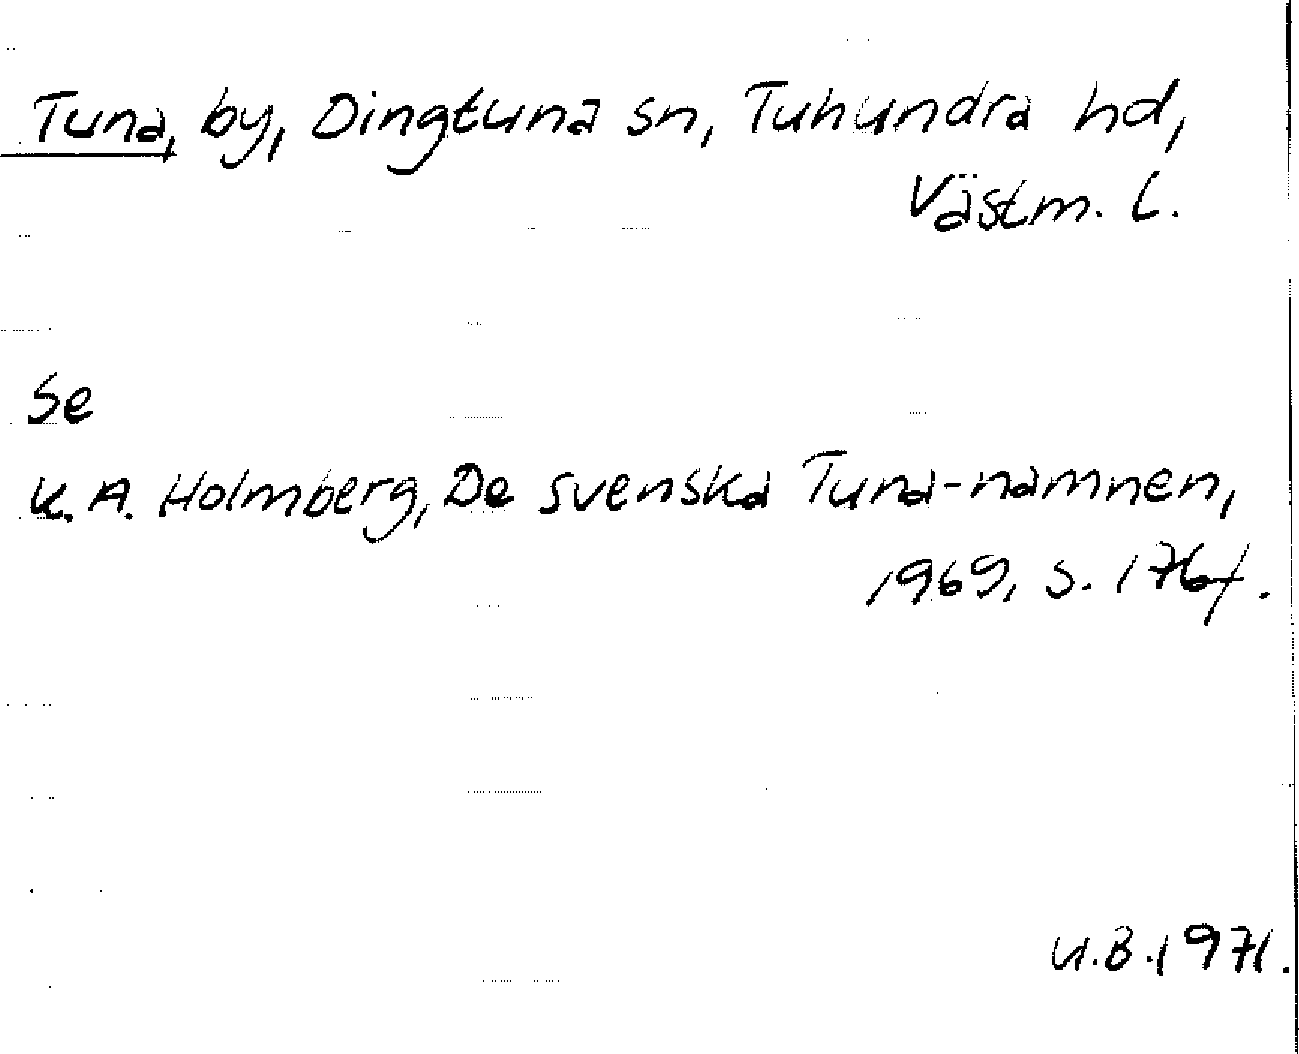 Tuna, by, Dingtuna sn, Tuhundra hd,
Västm. l.
Se
K. A. Holmberg, De svenska Tuna-namnen,
1969, s. 176f.
U.B.1971.